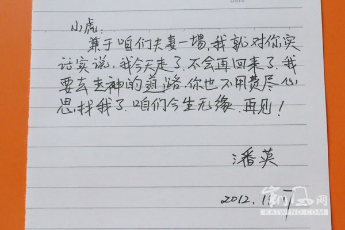 小虎:
基于咱们夫妻一场,我就对你实
话实说,我今天走了,不会再回来了,我
要去走神的道路,你也不用费尽心
思,找我了,咱们今生无缘,再见!
潘英
2012.11.17
KAIWIND.COM